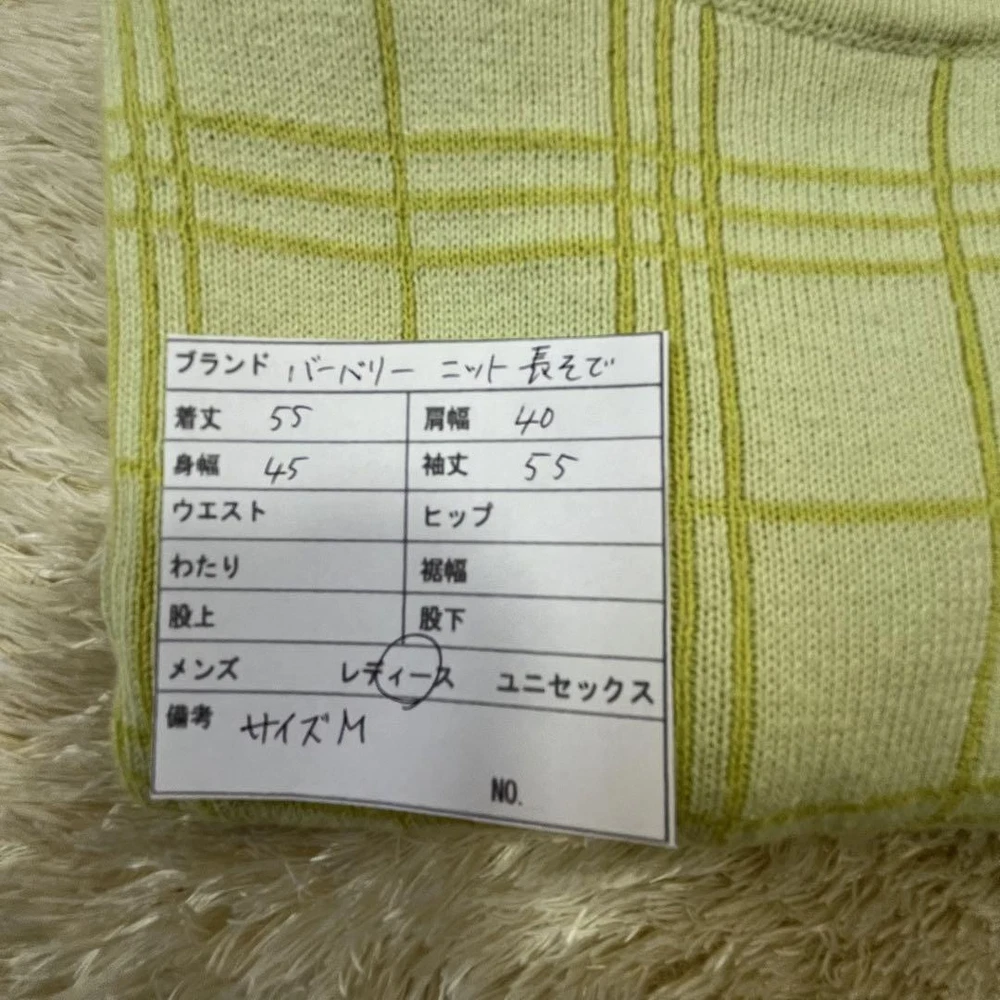 ブランド バーバリー ニット 長そで
着丈 55 肩幅 40
身幅 45 袖丈 55
ウエスト ヒップ
わたり 裾幅
股上 股下
メンズ レディース ユニセックス
備考 サイズM
NO.